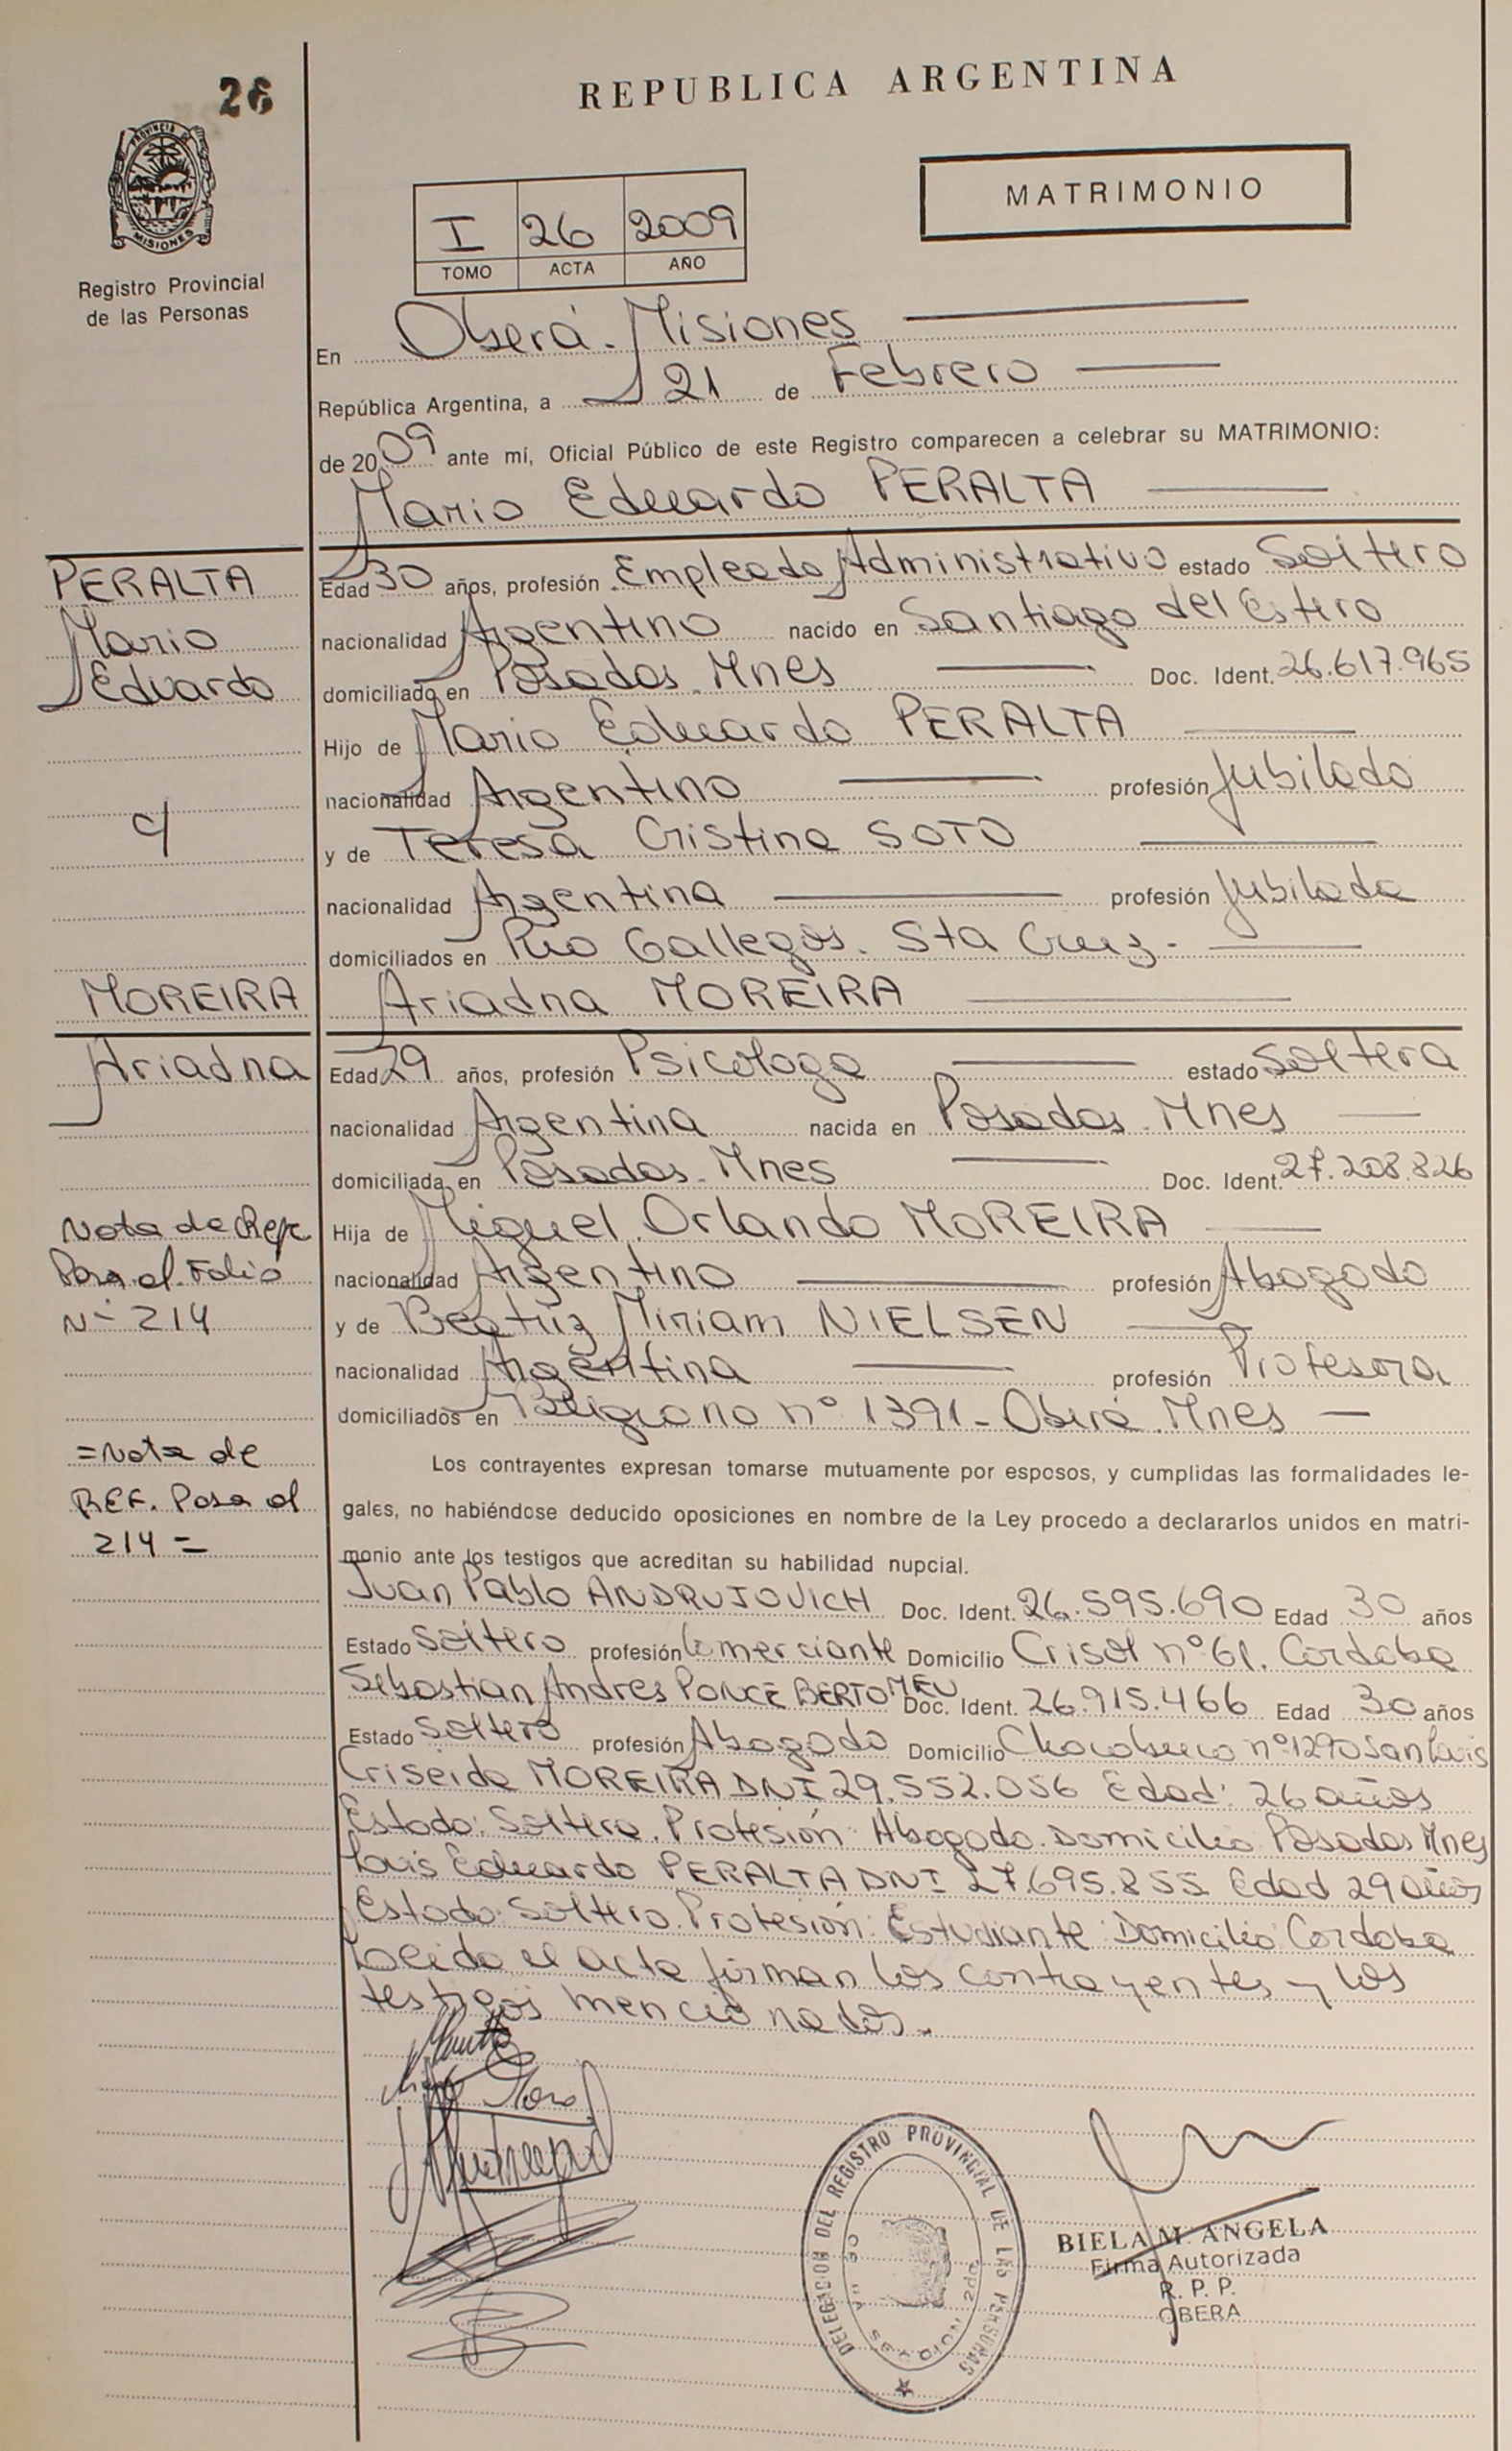 26
REPUBLICA ARGENTINA
MATRIMONIO
PROVINCIA DE
MISIONES
Registro Provincial
de las Personas
I 26 2009
TOMO ACTA AÑO
En Oberá. Misiones
República Argentina, a 21 de Febrero
de 2009 ante mí, Oficial Público de este Registro comparecen a celebrar su MATRIMONIO:
Mario Eduardo PERALTA
PERALTA
Mario
Eduardo
c/
MOREIRA
Ariadna
Edad 30 años, profesión Empleado Administrativo estado Soltero
nacionalidad Argentino nacido en Santiago del Estero
domiciliado en Posadas. Mnes Doc. Ident. 26.617.965
Hijo de Mario Eduardo PERALTA
nacionalidad Argentino profesión Jubilado
y de Teresa Cristina SOTO
nacionalidad Argentina profesión Jubilada
domiciliados en Río Gallegos. Sta Cruz.
Ariadna MOREIRA
Edad 29 años, profesión Psicóloga estado Soltera
nacionalidad Argentina nacida en Posadas. Mnes
domiciliada en Posadas. Mnes Doc. Ident. 27.208.826
Hija de Miguel Orlando MOREIRA
nacionalidad Argentino profesión Abogado
y de Beatriz Miriam NIELSEN
nacionalidad Argentina profesión Profesora
domiciliados en Belgrano nº 1391 - Oberá. Mnes
Nota de Ref.
Pasa al Folio
Nº 214
= Nota de
REF. Pasa al
214 =
Los contrayentes expresan tomarse mutuamente por esposos, y cumplidas las formalidades le-
gales, no habiéndose deducido oposiciones en nombre de la Ley procedo a declararlos unidos en matri-
monio ante los testigos que acreditan su habilidad nupcial.
Juan Pablo ANDRUJOVICH Doc. Ident. 26.595.690 Edad 30 años
Estado Soltero profesión Comerciante Domicilio Crisol nº 61. Córdoba
Sebastian Andres PONCE BERTOMEU Doc. Ident. 26.915.466 Edad 30 años
Estado Soltero profesión Abogado Domicilio Chacabuco nº 1290 San Luis
Criseida MOREIRA DNI 29.552.056 Edad: 26 años
Estado: Soltera. Profesión: Abogado. Domicilio Posadas Mnes
Luis Eduardo PERALTA DNI 27.695.855 Edad 29 años
Estado: Soltero. Profesión: Estudiante. Domicilio Cordoba
Leída el acta firman los contrayentes y los
testigos mencionados.
DELEGACION DEL REGISTRO PROVINCIAL DE LAS PERSONAS
BIELA M. ANGELA
Firma Autorizada
R. P. P.
OBERA